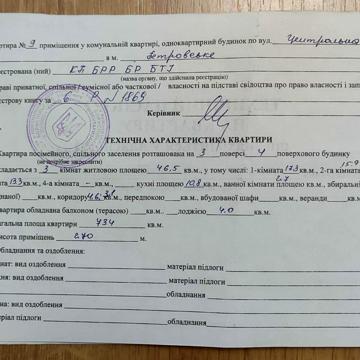 артира № 9 приміщення у комунальній квартирі, одноквартирний будинок по вул. Центральна
в м. Петровське
еєстрована (ний) КП БРР БР БТІ
(назва органу, що здійснила реєстрацію)
праві приватної, спільної /сумісної або часткової/ власності на підставі свідоцтва про право власності і зап
єстрову книгу за № 6 Р № 1869
Керівник
ТЕХНІЧНА ХАРАКТЕРИСТИКА КВАРТИРИ
Квартира посімейного, спільного заселення розташована на 3 поверсі 4 поверхового будинку
(не потрібне закреслити) 15-9
кладається з 3 кімнат житловою площею 46,5 кв.м., у тому числі: 1-кімната 17,3 кв.м., 2-га кімната
ата 13,3 кв.м., 4-а кімната – кв.м., кухні площею 10,8 кв.м., ванної кімнати площею кв.м., вбиральні
2,7
наної) кв.м., коридору кв.м., передпокою кв.м., вбудованої шафи кв.м., веранди кв.м.
Квартира обладнана балконом (терасою) кв.м., лоджією 4.0 кв.м.
агальна площа квартири 73,4 кв.м.
исота приміщень 2,70 м.
обладнання та оздоблення:
нат: вид оздоблення матеріал підлоги
ня: вид оздоблення матеріал підлоги
обладнання
на: вид оздоблення матеріал підлоги
обладнання